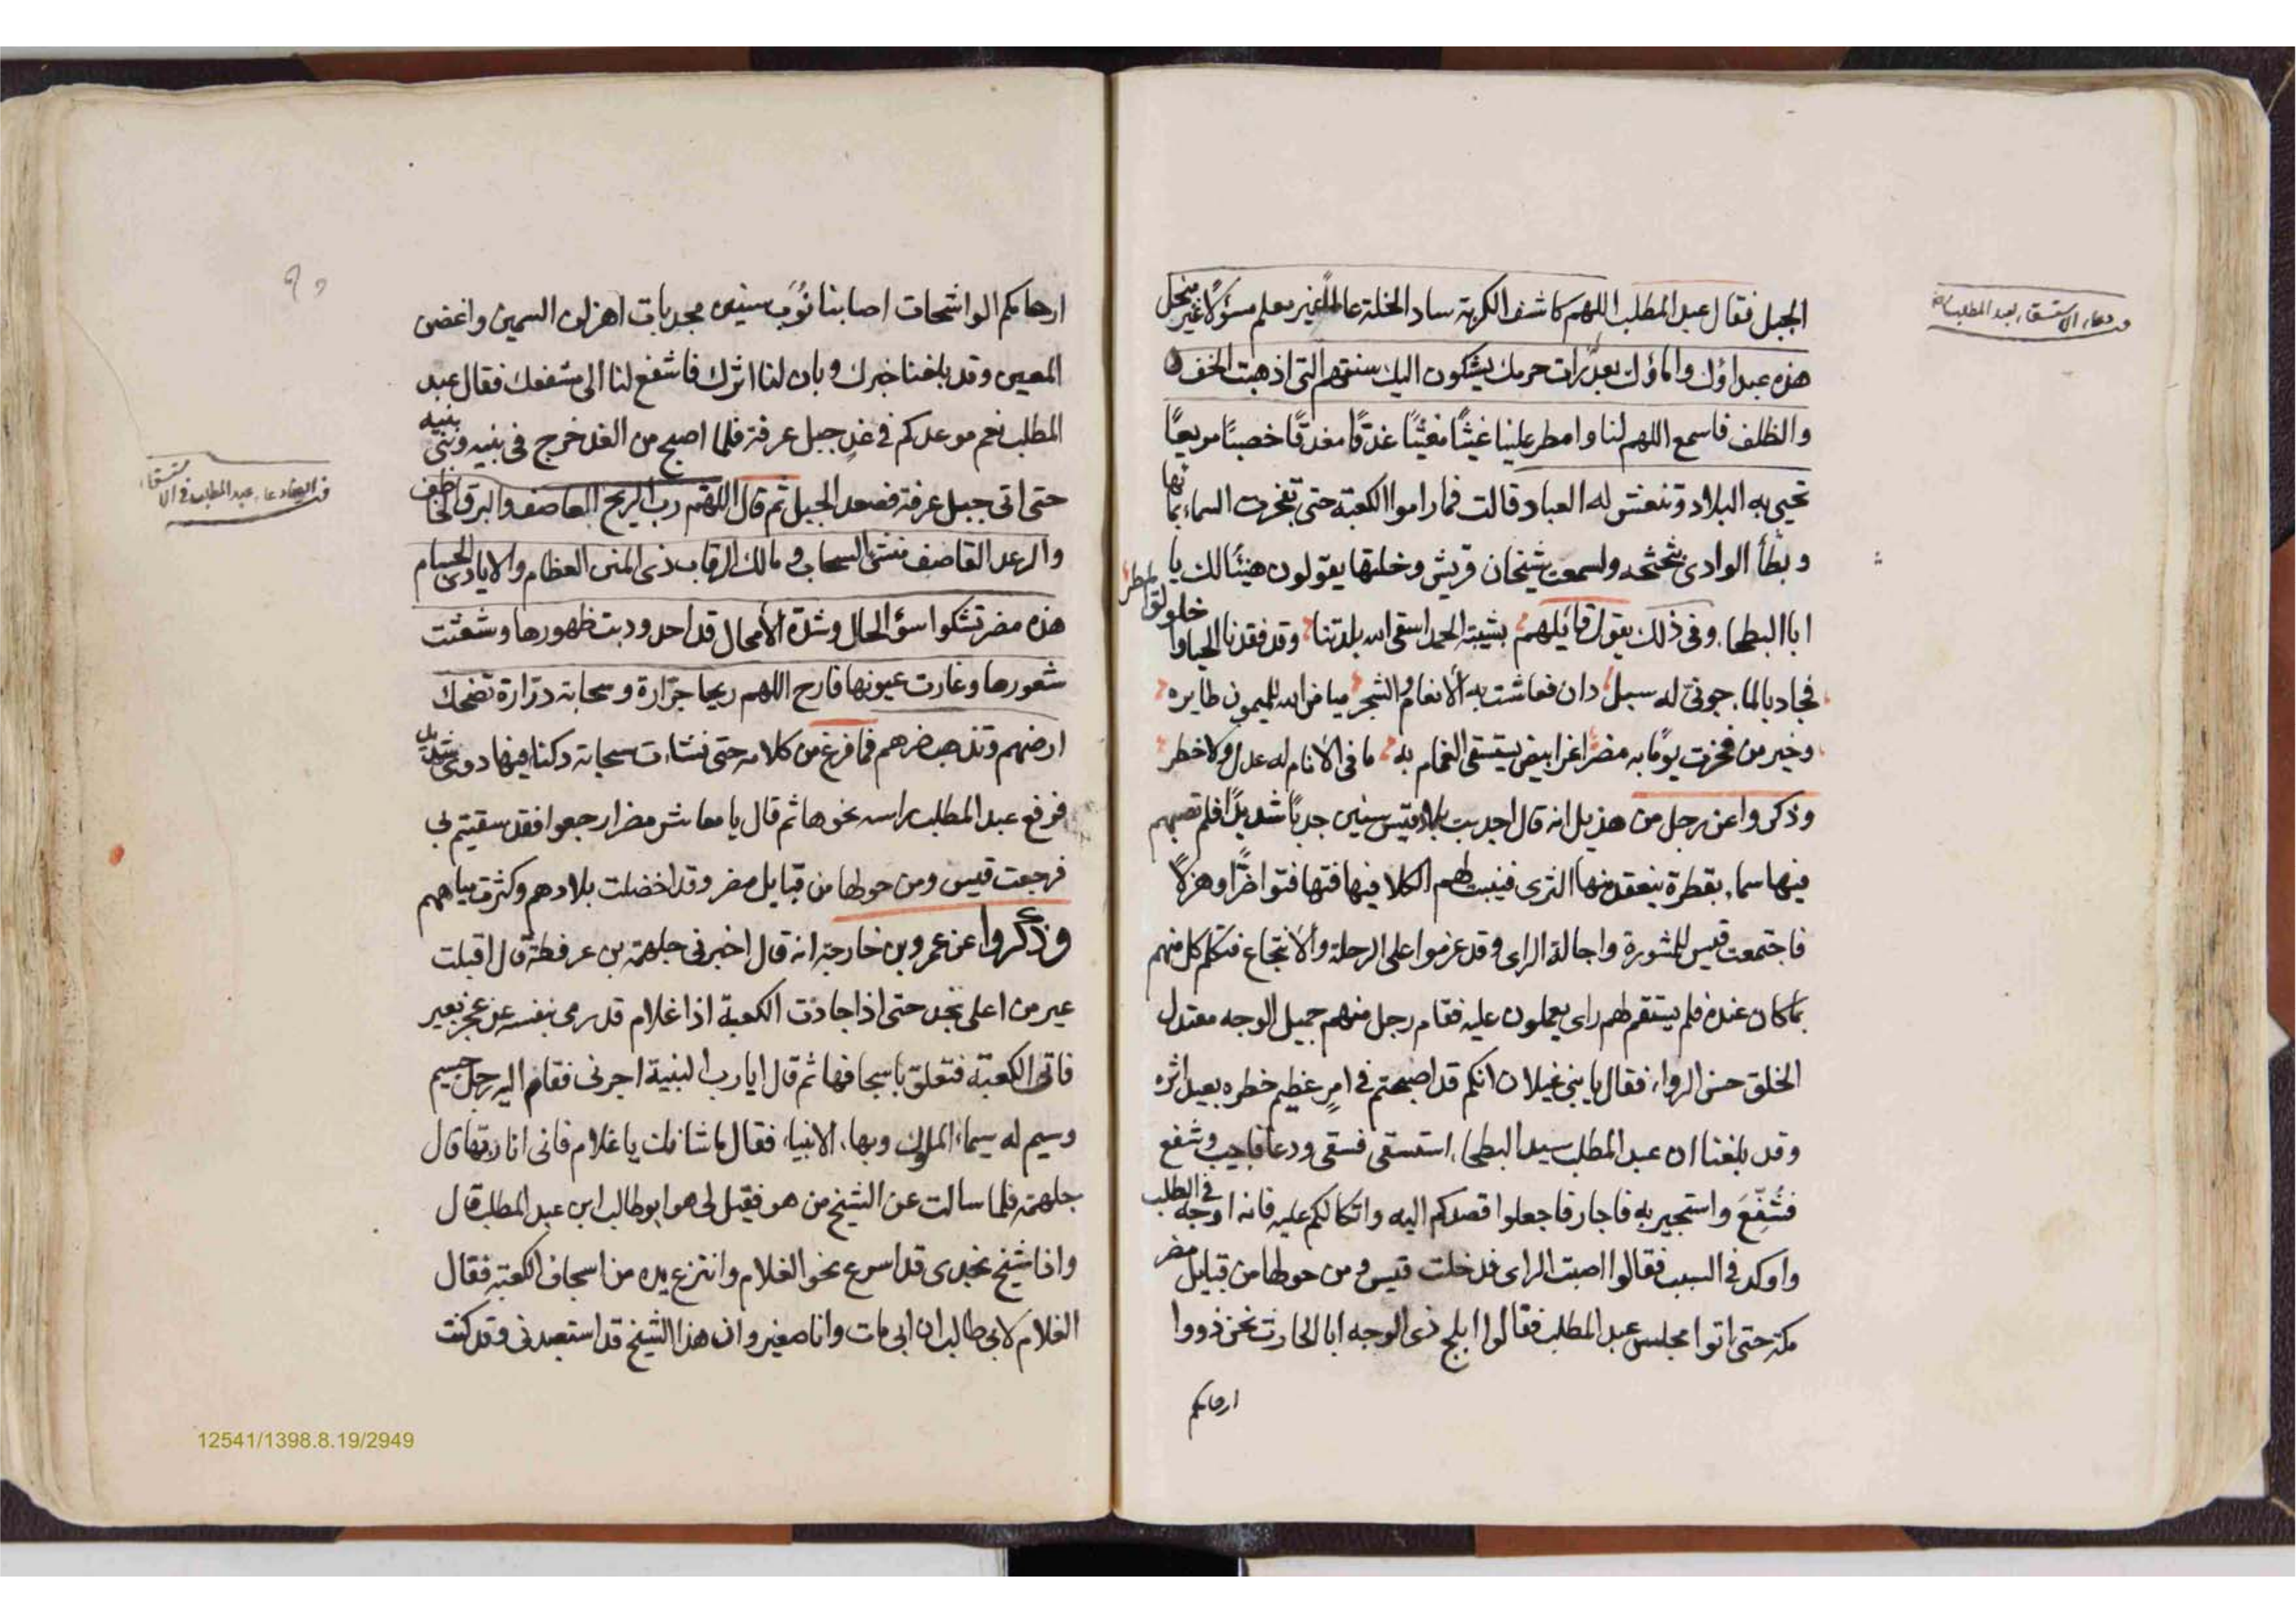 الجبل فقال عبد المطلب اللهم كاشف الكربة ساد الخلة عالما غير معلم مسؤلا غير منجل
هذه عبداؤك واماؤك بعذرات حرمك يشكون اليك سنتهم التى اذهبت الخف
والظلف فاسمع اللهم لنا وامطر علينا غيثا مغيثا غدقا مغدقا خصبا مريعا
تحيى به البلاد وتنعش له العباد قالت فما راموا الكعبة حتى تفجرت السماء بمائها
وبطأ الوادى بثجثجه ولسمعت شيخان قريش وخلتها يقولون هنيئا لك يا
ابا البطحاء وفى ذلك يقول قائلهم بشيبة الحمد اسقى الله بلدتنا وقد فقدنا الحيا واخلولق المطر
فجاد بالماء جونى له سبل دان فعاشت به الانعام والشجر ميامن الله لليمون طايره
وخير من فخرت يوما به مضر اغر ابيض يستسقى الغمام به ما فى الانام له عدل ولا خطر
وذكروا عن رجل من هذيل انه قال اجدبت بلاد قيس سنين جدبا شديدا فلم تصبهم
فيها سماء بقطرة ينعقد منها الثرى فينبت لهم الكلا فيها فتها فتوا ضرا وهزلا
فاجتمعت قيس للمشورة واجالة الراى وقد عزموا على الرحلة والانتجاع فتكلم كل منهم
بما كان عنده فلم يستقم لهم راى يعملون عليه فقام رجل منهم جميل الوجه معتدل
الخلق حسن الرواء فقال يا بنى غيلان انكم قد اصبحتم فى امر عظيم خطره بعيد اثره
وقد بلغنا ان عبد المطلب سيد البطحاء استسقى فسقى ودعا فاجيب وشفع
فشفع واستجير به فاجار فاجعلوا قصدكم اليه واتكالكم عليه فانه اوجه فى الطلب
واوكد فى السبب فقالوا اصبت الراى فدخلت قيس ومن حولها من قبايل مضر
مكة حتى اتوا مجلس عبد المطلب فقالوا ابلج ذى الوجه ابا الحارث نحن ذووا
ارحامكم
دعاء الاستسقاء لعبد المطلب
ارحامكم الواشجات اصابنا نوب سنين مجدبات اهزلن السمين واغضن
المعين وقد بلغنا خبرك وبان لنا اثرك فاشفع لنا الى مشفعك فقال عبد
المطلب نعم موعدكم فى غد جبل عرفة فلما اصبح من الغد خرج فى بنيه وبنى بنيه
حتى اتى جبل عرفة فصعد الجبل ثم قال اللهم رب الريح العاصف والبرق الخاطف
والرعد القاصف منشى السحاب ومالك الرقاب ذى المنن العظام والايادى الجسام
هذه مضر تشكوا سؤ الحال وشدة الأمحال قد احدودبت ظهورها وشعثت
شعورها وغارت عيونها فارح اللهم ريحا جرارة وسحابة درارة تضحك
ارضهم وتذهب ضرهم فما فرغ من كلامه حتى نشاءت سحابة دكنا فيها دوى شديد
فرفع عبد المطلب راسه نحوها ثم قال يا معاشر مضر ارجعوا فقد سقيتم
فرجعت قيس ومن حولها من قبايل مضر وقد اخضلت بلادهم وكثرت مياههم
وذكروا عن عمرو بن خارجة انه قال اخبرنى جلهمة بن عرفطة قال اقبلت
عير من اعلى نجد حتى اذا جاذت الكعبة اذا غلام قد رمى بنفسه عن عجز بعير
فاتى الكعبة فتعلق باسجافها ثم قال ايا رب البنية اجرنى فقام اليه رجل جسيم
وسيم له سيماء الملوك وبهاء الانبياء فقال ما شانك يا غلام فانى انا ربها قال
جلهمة فلما سالت عن الشيخ من هو فقيل لى هو ابو طالب ابن عبد المطلب قال
واذا شيخ نجدى قد اسرع نحو الغلام وانتزع يده من اسجاف الكعبة فقال
الغلام لابى طالب ان ابى مات وانا صغير وان هذا الشيخ قد استعبدنى وقد كنت
دعاء عبد المطلب فى الاستسقاء
12541/1398.8.19/2949